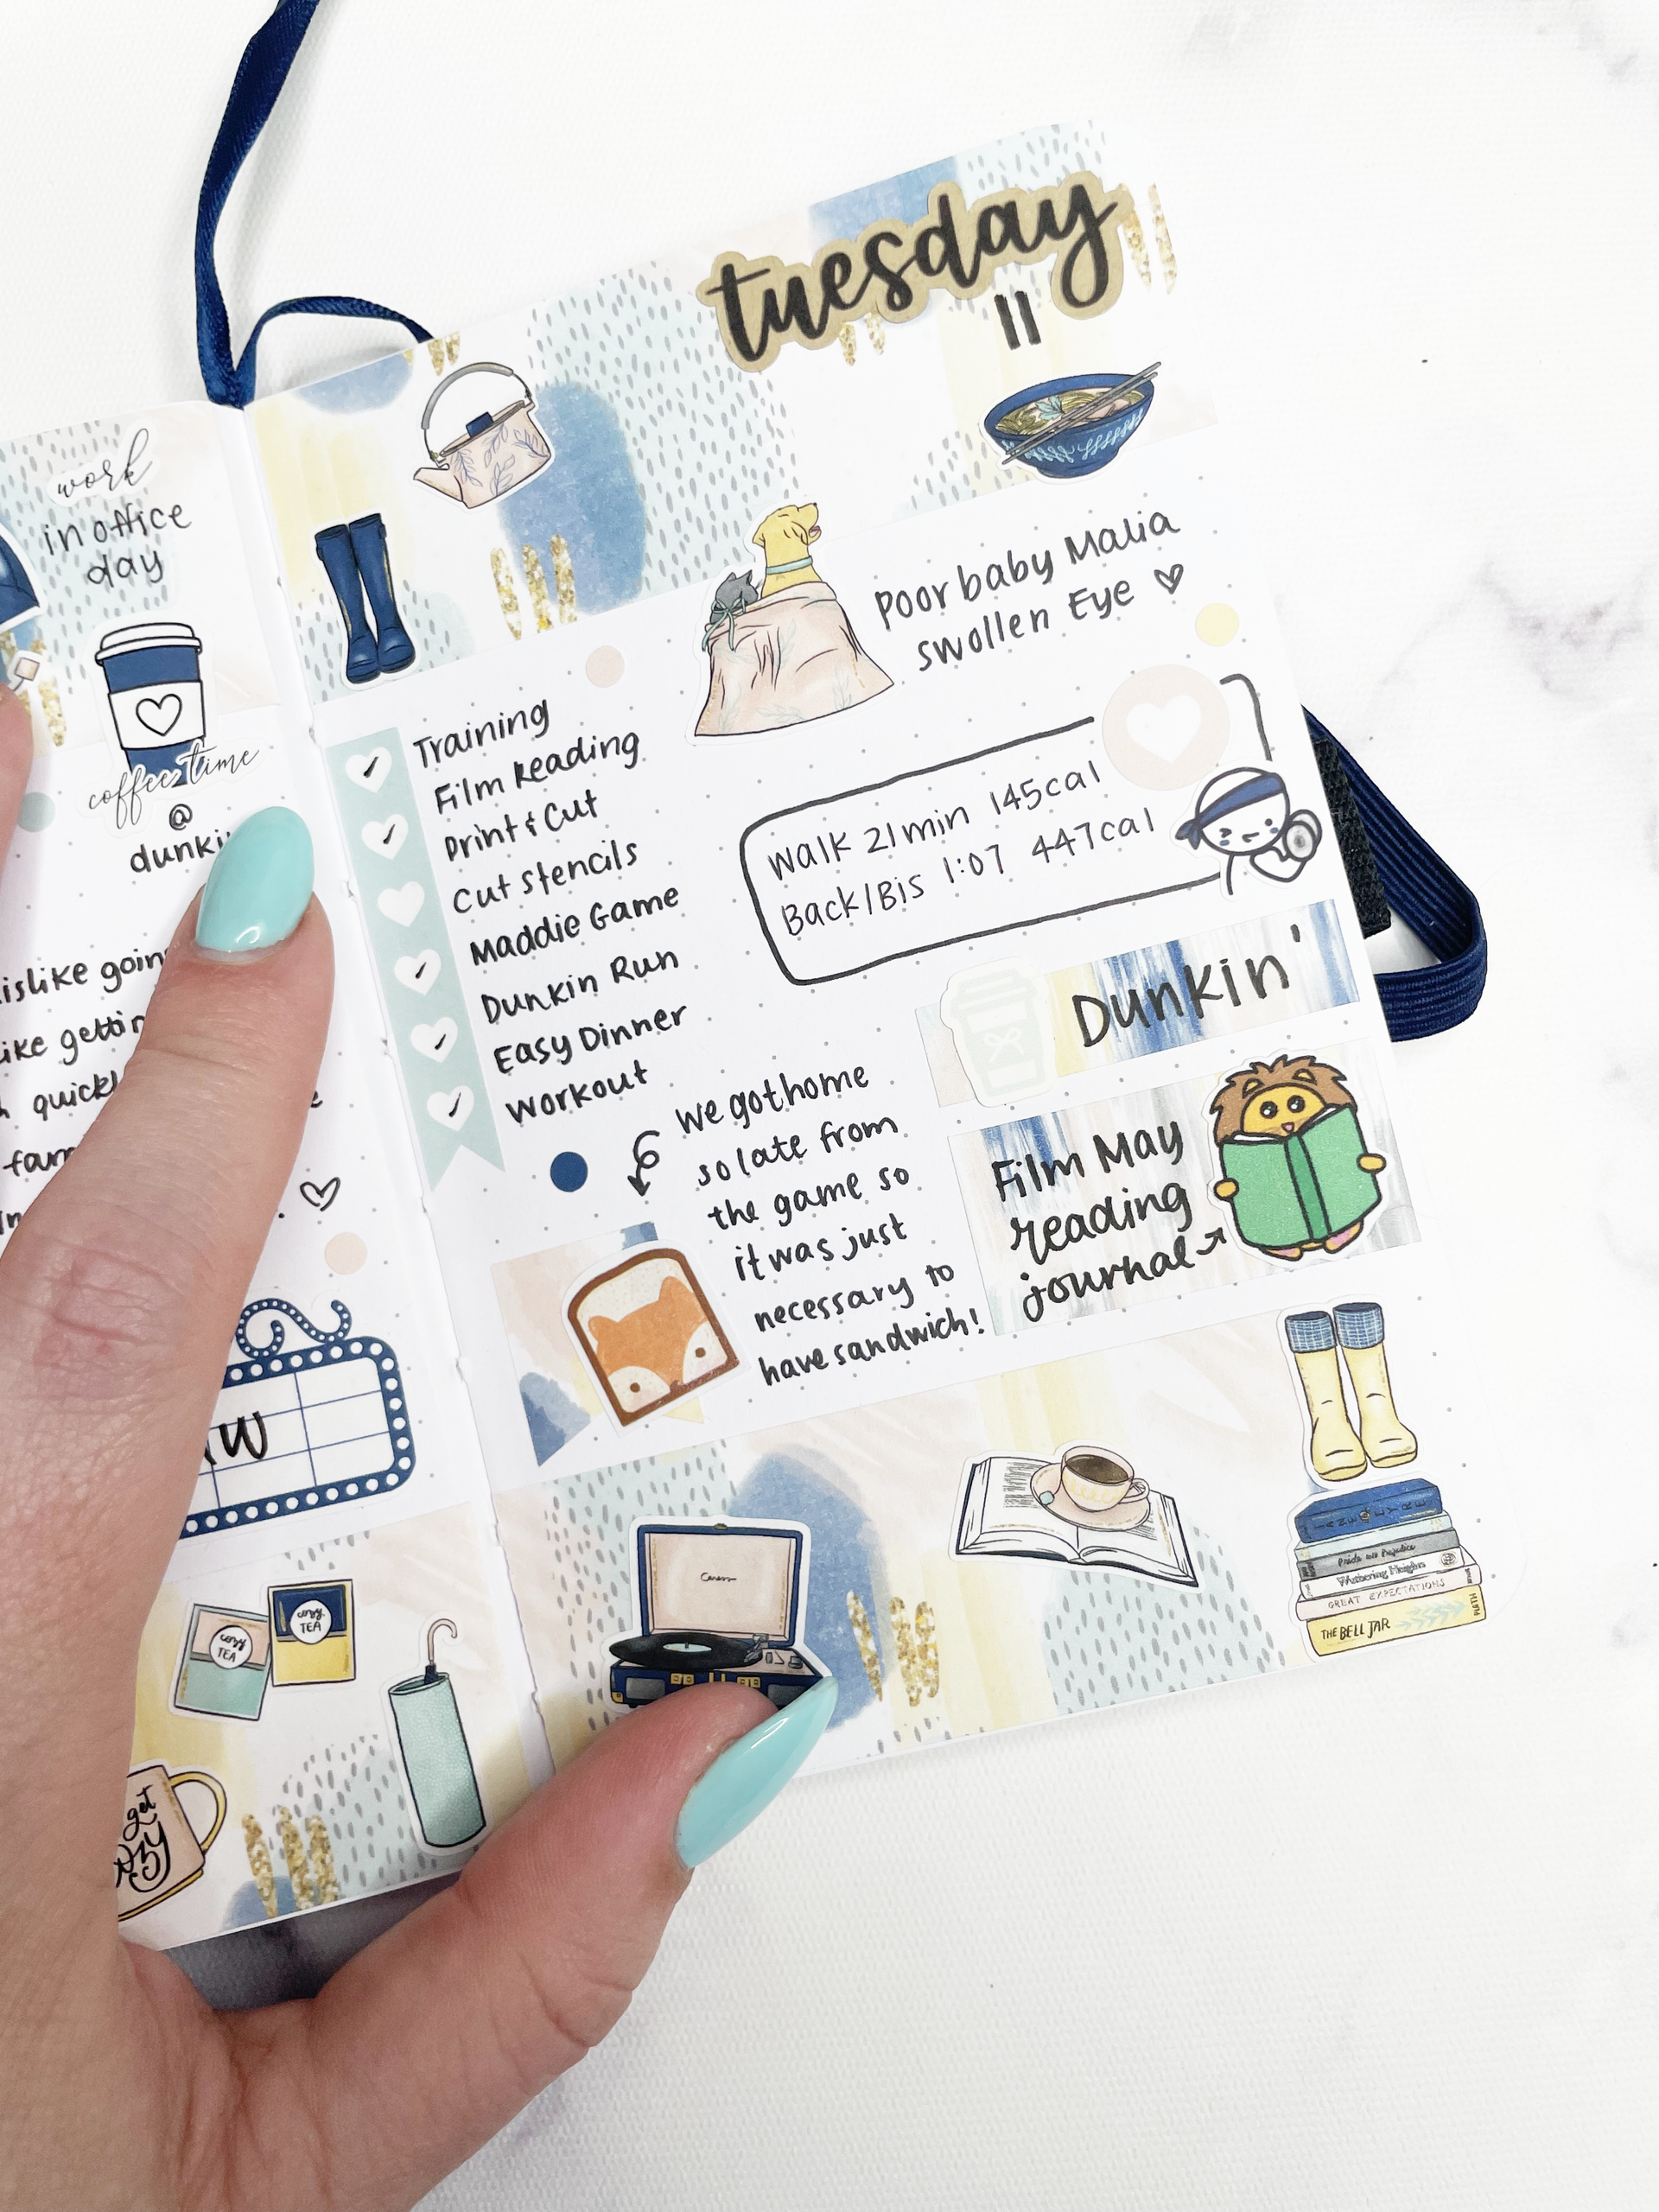 work
in office
day
coffee time
@
like gettin
get
cozy
cozy
TEA
cozy
TEA
tuesday
11
Poor baby Malia
swollen Eye ♡
Training
Film Reading
Print & Cut
Cut Stencils
Maddie Game
Dunkin Run
Easy Dinner
workout
Walk 21min 145cal
Back/Bis 1:07 447cal
Dunkin'
We got home
so late from
the game so
it was just
necessary to
have sandwich!
Film May
reading
journal
JANE EYRE
Pride and Prejudice
Wuthering Heights
GREAT EXPECTATIONS
THE BELL JAR PLATH